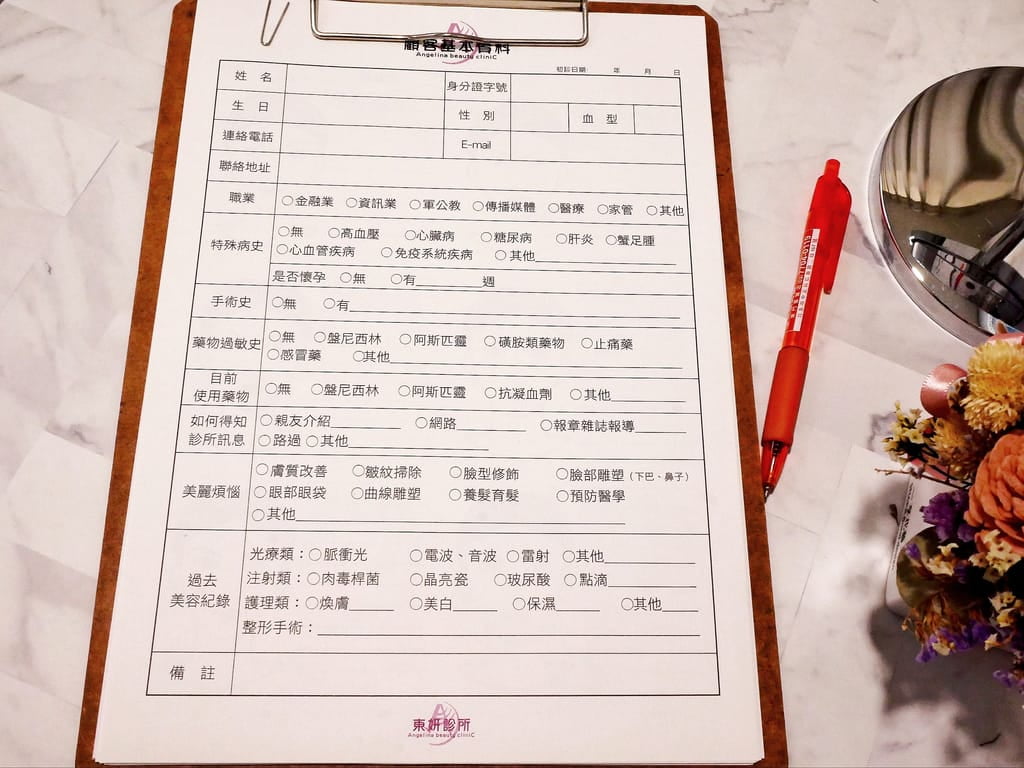 顧客基本資料
Angelina beauty cliniC
初診日期: 年 月 日
姓 名 身分證字號
生 日 性 別 血 型
連絡電話 E-mail
聯絡地址
職業 ○金融業 ○資訊業 ○軍公教 ○傳播媒體 ○醫療 ○家管 ○其他
特殊病史 ○無 ○高血壓 ○心臟病 ○糖尿病 ○肝炎 ○蟹足腫
○心血管疾病 ○免疫系統疾病 ○其他
是否懷孕 ○無 ○有 週
手術史 ○無 ○有
藥物過敏史 ○無 ○盤尼西林 ○阿斯匹靈 ○磺胺類藥物 ○止痛藥
○感冒藥 ○其他
目前
使用藥物 ○無 ○盤尼西林 ○阿斯匹靈 ○抗凝血劑 ○其他
如何得知
診所訊息 ○親友介紹 ○網路 ○報章雜誌報導
○路過 ○其他
美麗煩惱 ○膚質改善 ○皺紋掃除 ○臉型修飾 ○臉部雕塑(下巴、鼻子)
○眼部眼袋 ○曲線雕塑 ○養髮育髮 ○預防醫學
○其他
過去
美容紀錄 光療類:○脈衝光 ○電波、音波 ○雷射 ○其他
注射類:○肉毒桿菌 ○晶亮瓷 ○玻尿酸 ○點滴
護理類:○煥膚 ○美白 ○保濕 ○其他
整形手術:
備 註
東妍診所
Angelina beauty cliniC